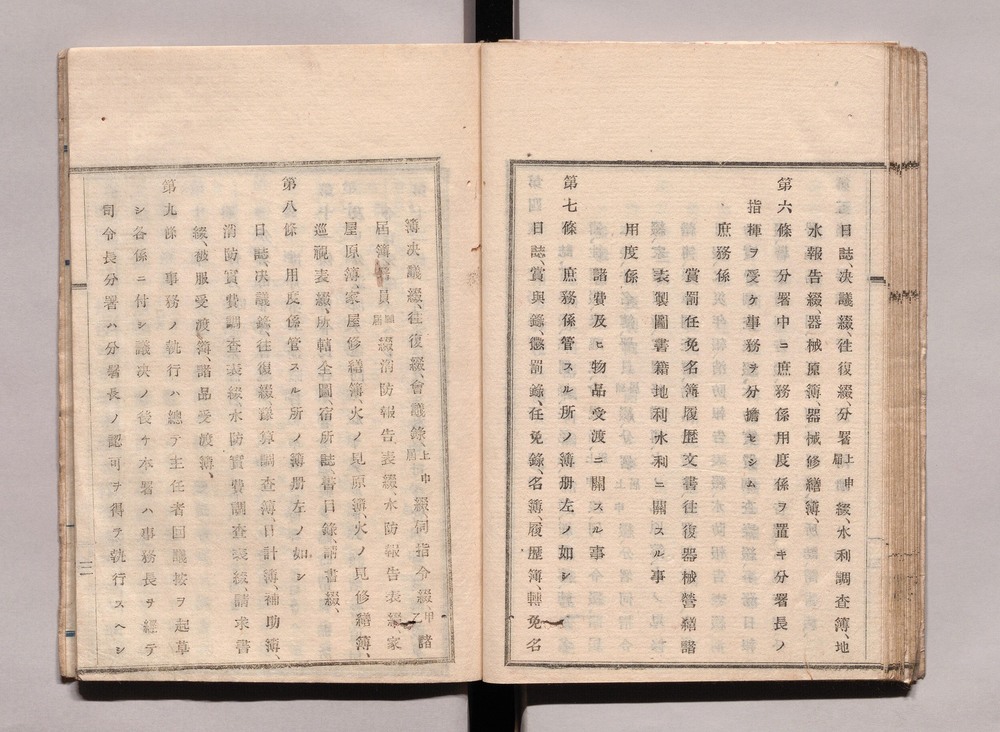 日誌、決議綴、往復綴分署上申届綴、水利調査簿、地
水報告綴、器械原簿、器械修繕簿、
第六條　分署中ニ庶務係用度係ヲ置キ分署長ノ
指揮ヲ受ケ事務ヲ分擔セシム
庶務係
賞罰任免名簿履歴文書往復器械營繕諸
表製圖書籍地利水利ニ關スル事
用度係
諸費及ヒ物品受渡ニ關スル事
第七條　庶務係管スル所ノ簿册左ノ如シ
日誌、賞與錄、懲罰錄、任免錄、名簿、履歴簿、轉免名
簿決議綴、往復綴、會議錄、上申届綴伺指令綴、甲乙諸
屆簿、員願届綴消防報告表綴、水防報告表綴、家
屋原簿、家屋修繕簿、火ノ見原簿、火ノ見修繕簿、
巡視表綴、所轄全圖宿所誌、書目錄、請書綴、
第八條　用度係管スル所ノ簿册左ノ如シ
日誌、決議錄、往復綴豫算調査簿、日計簿補助簿
消防實費調査表綴、水防實費調査表綴、請求書
綴、被服受渡簿、諸品受渡簿、
第九條　事務ノ執行ハ總テ主任者回議按ヲ起草
シ各係ニ付シ議決ノ後ケ本署ハ事務長ヲ經テ
司令長分署ハ分署長ノ認可ヲ得テ執行スヘシ
三